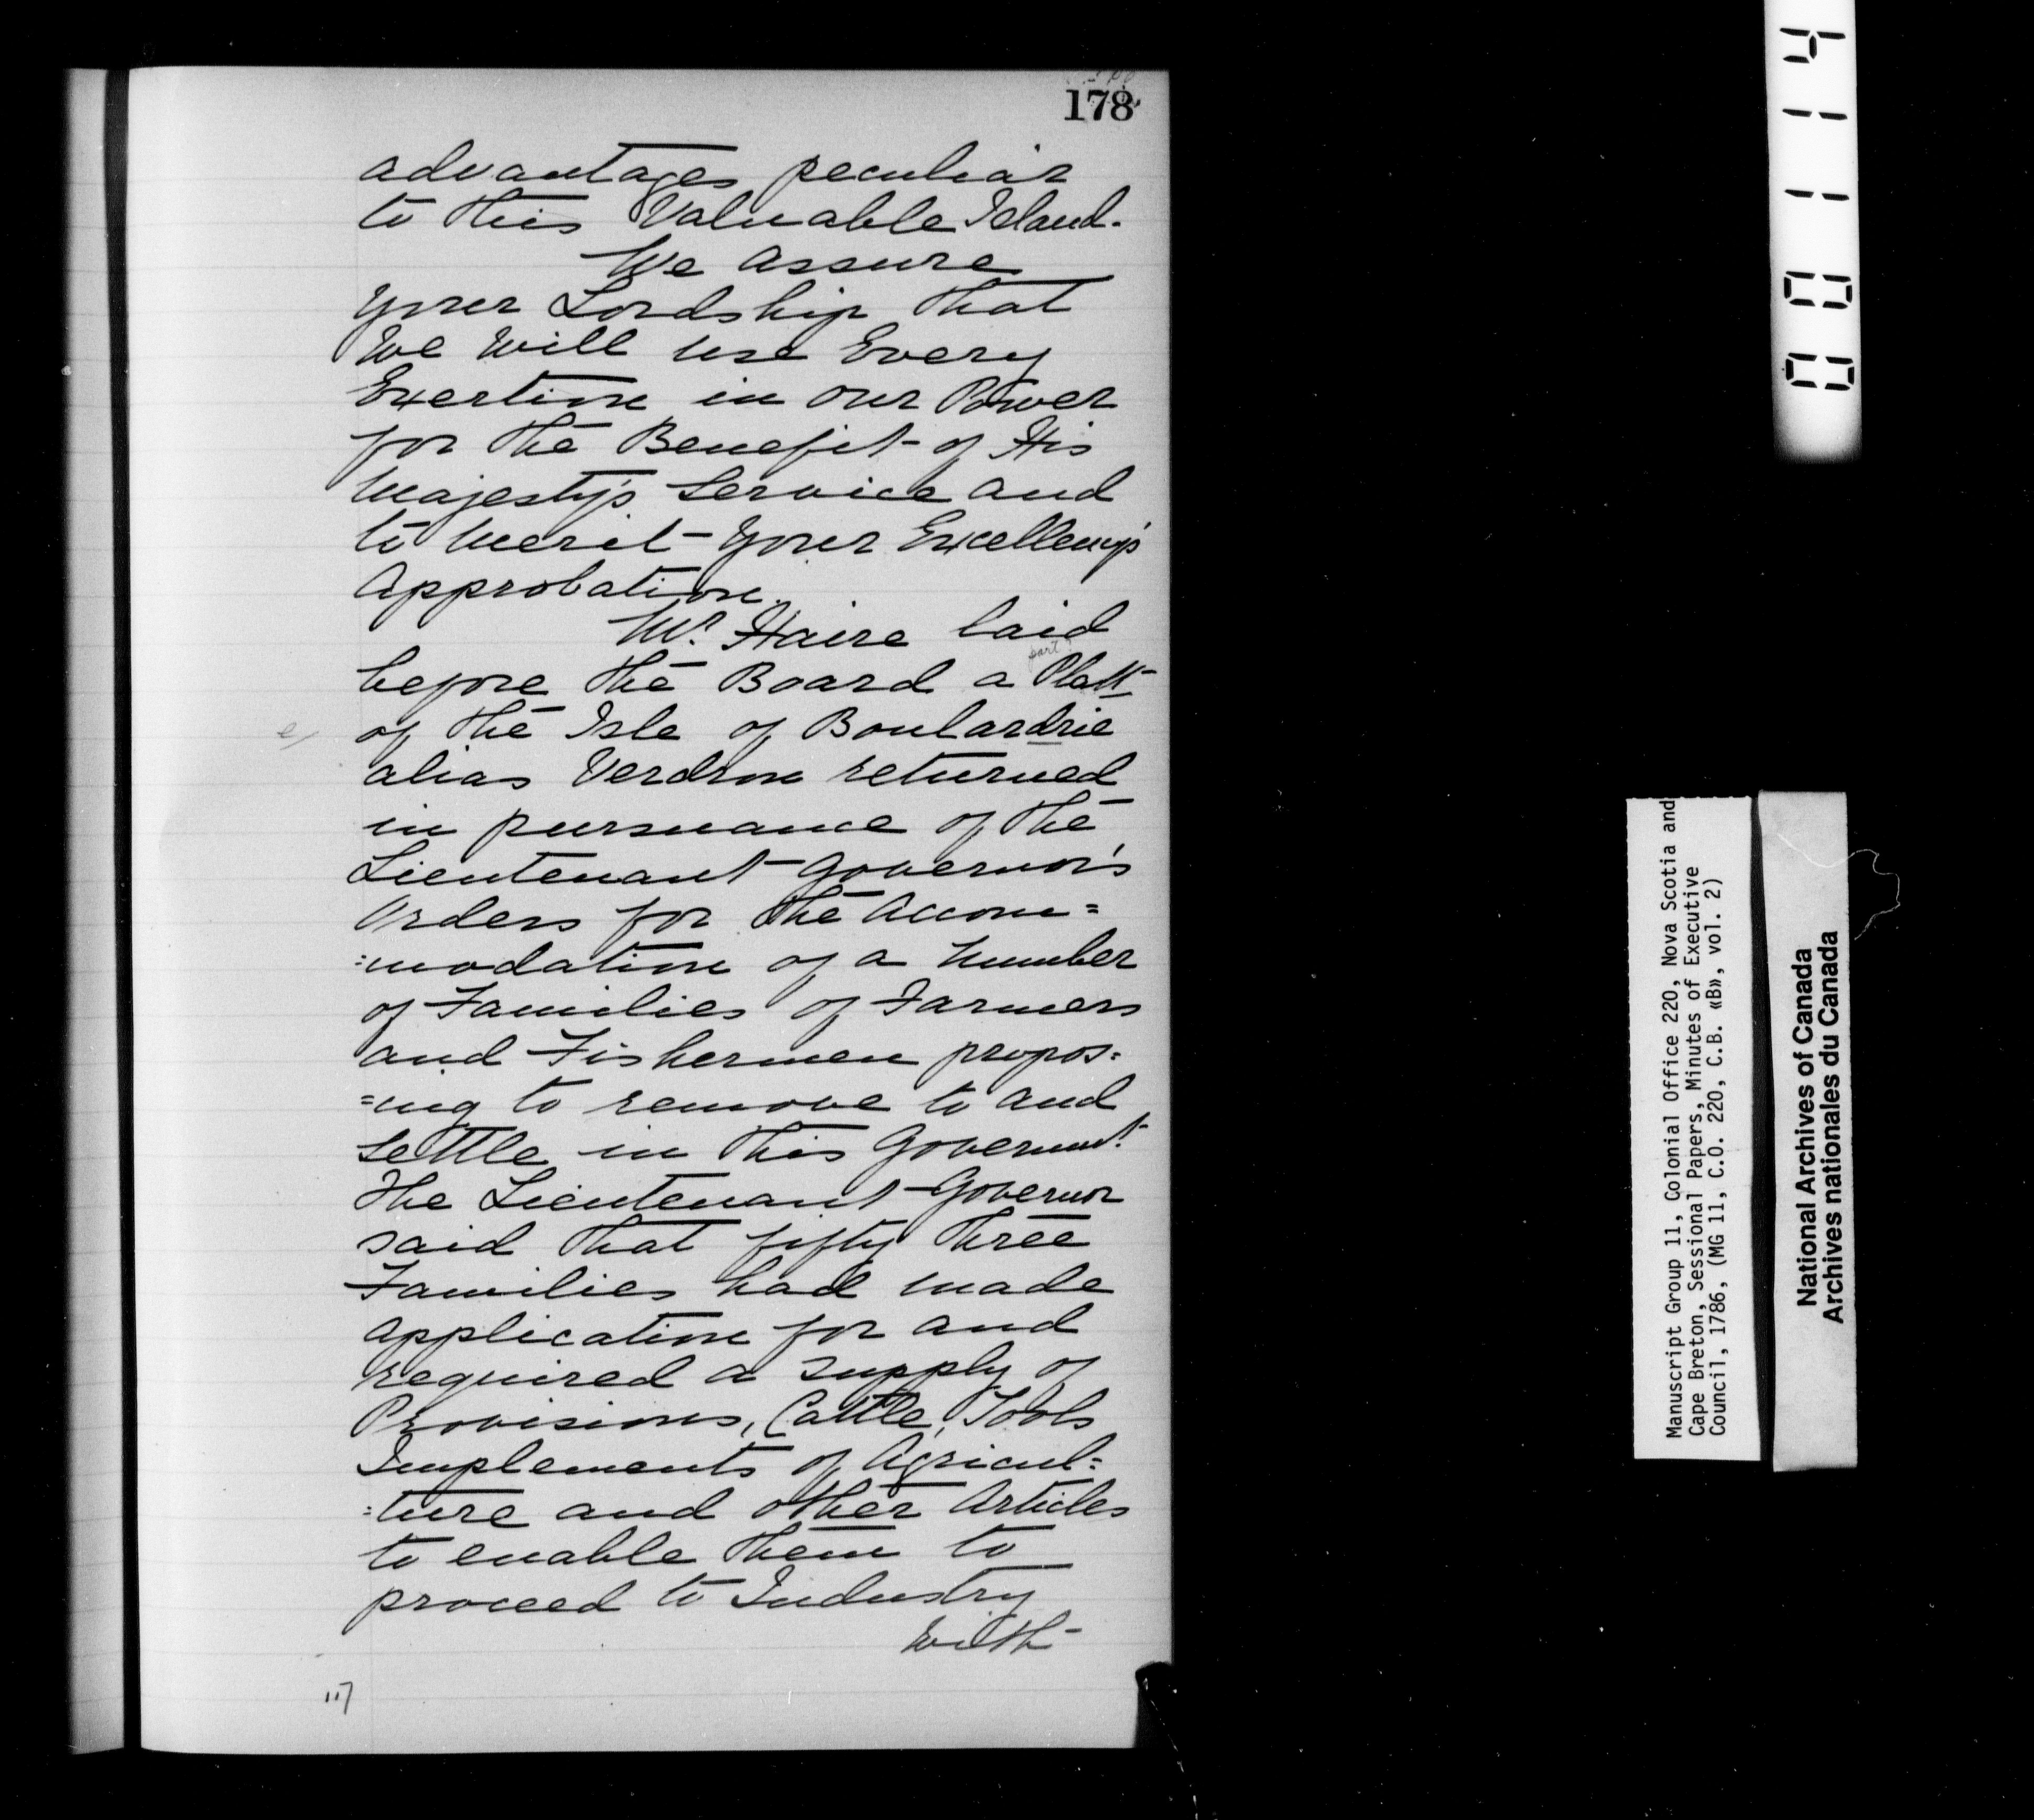 178
advantages peculiar
to this Valuable Island.
We assure
your Lordship that
We Will use Every
Exertion in our Power
for the Benefit of His
Majesty's Service and
to Merit Your Excellency's
Approbation.
Mr. Haire laid
part?
before the Board a Platt
of the Isle of Boulardrie
alias Verdron returned
in pursuance of the
Lieutenant Governor's
Orders for the Accom=
=modation of a Number
of Families of Farmers
and Fishermen propos=
=ing to remove to and
settle in this Governmt.
The Lieutenant Governor
said that fifty three
Families had made
application for and
required a supply of
Provisions, Cattle, Tools
Implements of Agricul=
=ture and other Articles
to enable them to
proceed to Industry
with
117
00114
Manuscript Group 11, Colonial Office 220, Nova Scotia and
Cape Breton, Sessional Papers, Minutes of Executive
Council, 1786. (MG 11, C.O. 220, C.B. «B», vol. 2)
National Archives of Canada
Archives nationales du Canada